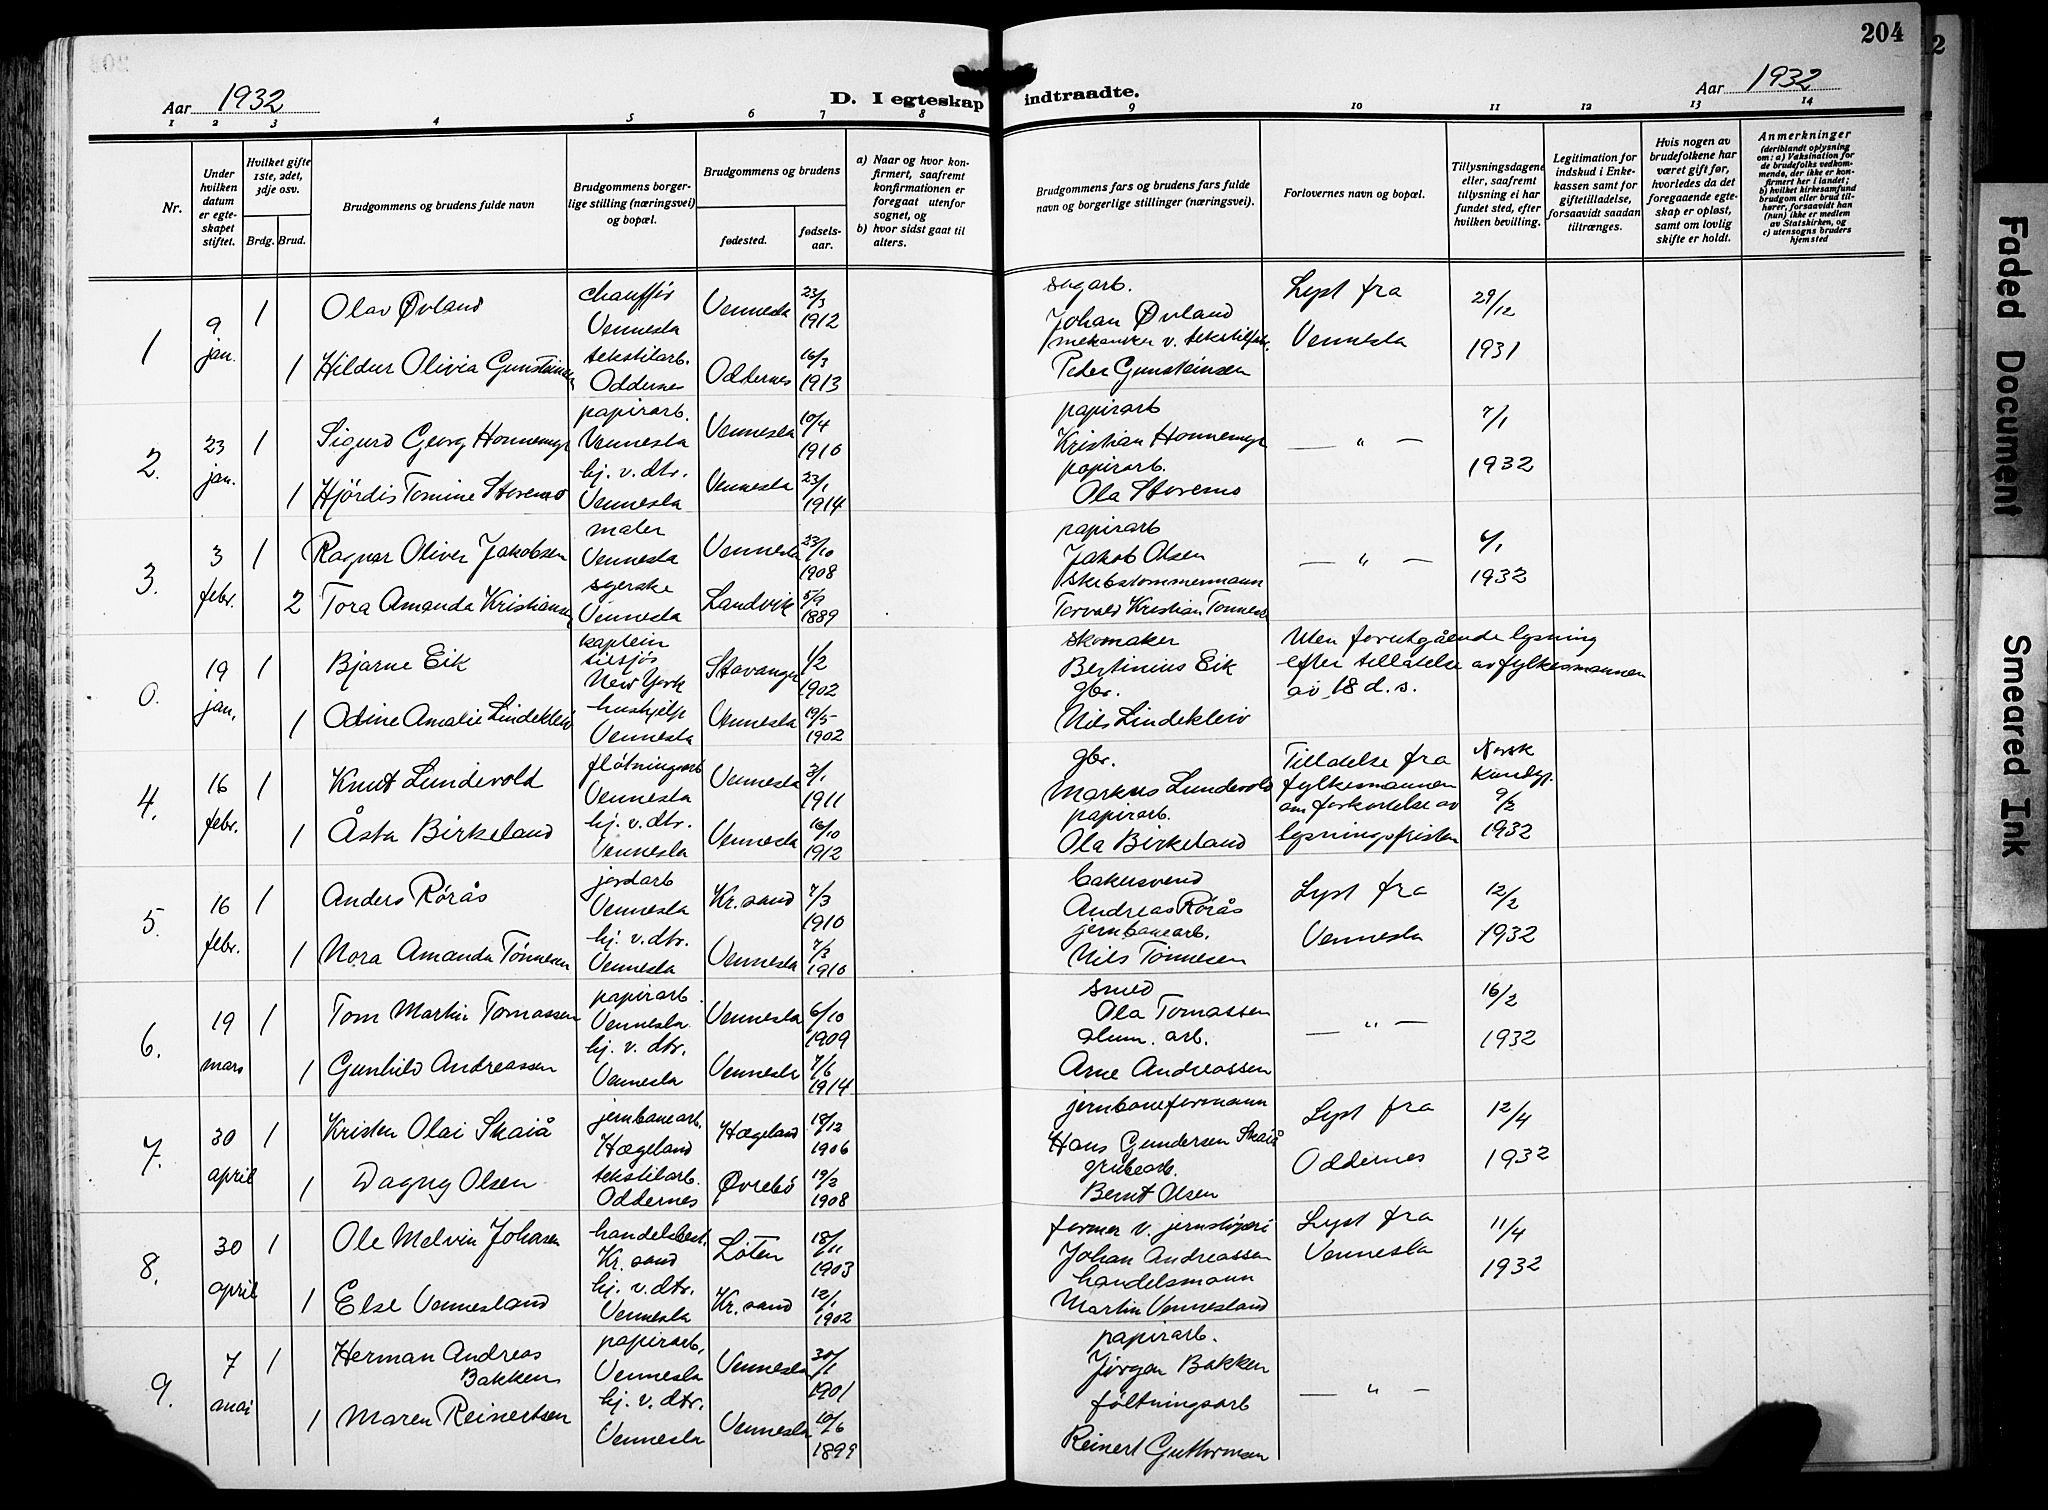 204
2
Aar 1932
D. I egteskap indtraadte.
Aar 1932
1 2 3 4 5 6 7 8 9 10 11 12 13 14
Nr.
Under hvilken datum er egteskapet stiftet.
Hvilket gifte 1ste, 2det, 3dje osv.
Brdg. Brud.
Brudgommens og brudens fulde navn
Brudgommens borgerlige stilling (næringsvei) og bopæl.
Brudgommens og brudens
fødested.
fødselsaar.
a) Naar og hvor konfirmert, saafremt konfirmationen er foregaat utenfor sognet, og
b) hvor sidst gaat til alters.
Brudgommens fars og brudens fars fulde navn og borgerlige stillinger (næringsvei).
Forlovernes navn og bopæl.
Tillysningsdagene eller, saafremt tillysning ei har fundet sted, efter hvilken bevilling.
Legitimation for indskud i Enkekassen samt for giftetilladelse, forsaavidt saadan tiltrænges.
Hvis nogen av brudefolkene har været gift før, hvorledes da det foregaaende egteskap er opløst, samt om lovlig skifte er holdt.
Anmerkninger
(deriblandt oplysning om: a) Vaksination for de brudefolks vedkommende, der ikke er konfirmert her i landet; b) hvilket kirkesamfund brudgom eller brud tilhører, forsaavidt han (hun) ikke er medlem av Statskirken, og c) utensogns bruders hjemsted
1 9 jan. 1 Olav Øvland chauffør Vennesla Vennesla 23/3 1912 sagarb. Johan Øvland Lyst fra Vennesla 29/12 1931
1 Hildur Olivia Gunsteinsen tekstilarb. Oddernes Oddernes 16/3 1913 mekaniker v. tekstilfabr. Peder Gunsteinsen
2. 23 jan. 1 Sigurd Georg Honnemyr papirarb. Vennesla Vennesla 10/4 1910 papirarb Kristian Honnemyr — " — 7/1 1932
1 Hjördis Tomine Storemo hj. v. dtr. Vennesla Vennesla 23/1 1914 papirarb. Ola Storemo
3. 3 febr. 1 Ragnar Oliver Jakobsen maler Vennesla Vennesla 23/10 1908 papirarb Jakob Olsen — " — 6/1 1932
2 Tora Amanda Kristiansen syerske Vennesla Landvik 5/9 1889 skibstømmermann Torvald Kristian Tønnesen
0. 19 jan. 1 Bjarne Eik kaptein tilsjös New York Stavanger 1/2 1902 skomaker Bertinius Eik Uten forutgående lysning efter tillatelse av fylkesmannen av 18 d.s.
1 Odine Amalie Lindekleiv hushjelp Vennesla Vennesla 19/5 1902 gbr. Nils Lindekleiv
4. 16 febr. 1 Knut Lundevold fløtningsarb Vennesla Vennesla 3/1 1911 gbr. Markus Lundevold Tilladelse fra fylkesmannen om forkortelse av lysningsfristen Norsk Kundgj. 9/2 1932
1 Åsta Birkeland hj. v. dtr. Vennesla Vennesla 16/10 1912 papirarb. Ola Birkeland
5. 16 febr. 1 Anders Rørås jordarb Vennesla Kr. sand 7/3 1910 bakersvend Andreas Rørås Lyst fra Vennesla 12/2 1932
1 Nora Amanda Tønnesen hj. v. dtr. Vennesla Vennesla 7/3 1910 jernbanearb. Nils Tönnesen
6. 19 mars 1 Tom Martin Tomassen papirarb. Vennesla Vennesla 6/10 1909 smed Ola Tomassen — " — 16/2 1932
1 Gunhild Andreassen hj. v. dtr. Vennesla Vennesla 7/6 1914 alum. arb. Arne Andreassen
7. 30 april 1 Kristen Olai Skaiå jernbanearb. Hægeland Hægeland 18/12 1906 jernbaneformann Hans Gundersen Skaiå Lyst fra Oddernes 12/4 1932
1 Dagny Olsen tekstilarb. Oddernes Øvrebö 19/2 1908 grubearb. Bernt Olsen
8. 30 april 1 Ole Melvin Johansen handelsbest. Kr. sand Löten 18/11 1903 former v. jernstøperi Johan Andreassen Lyst fra Vennesla 11/4 1932
1 Else Vennesland hj. v. dtr. Vennesla Kr. sand 12/1 1902 handelsmann Martin Vennesland
9. 7 mai 1 Herman Andreas Bakken papirarb. Vennesla Vennesla 30/1 1901 papirarb. Jörgen Bakken — " —
1 Maren Reinertsen hj. v. dtr. Vennesla Vennesla 10/6 1899 föltningsarb Reinert Guttormsen
Faded Document
Smeared Ink